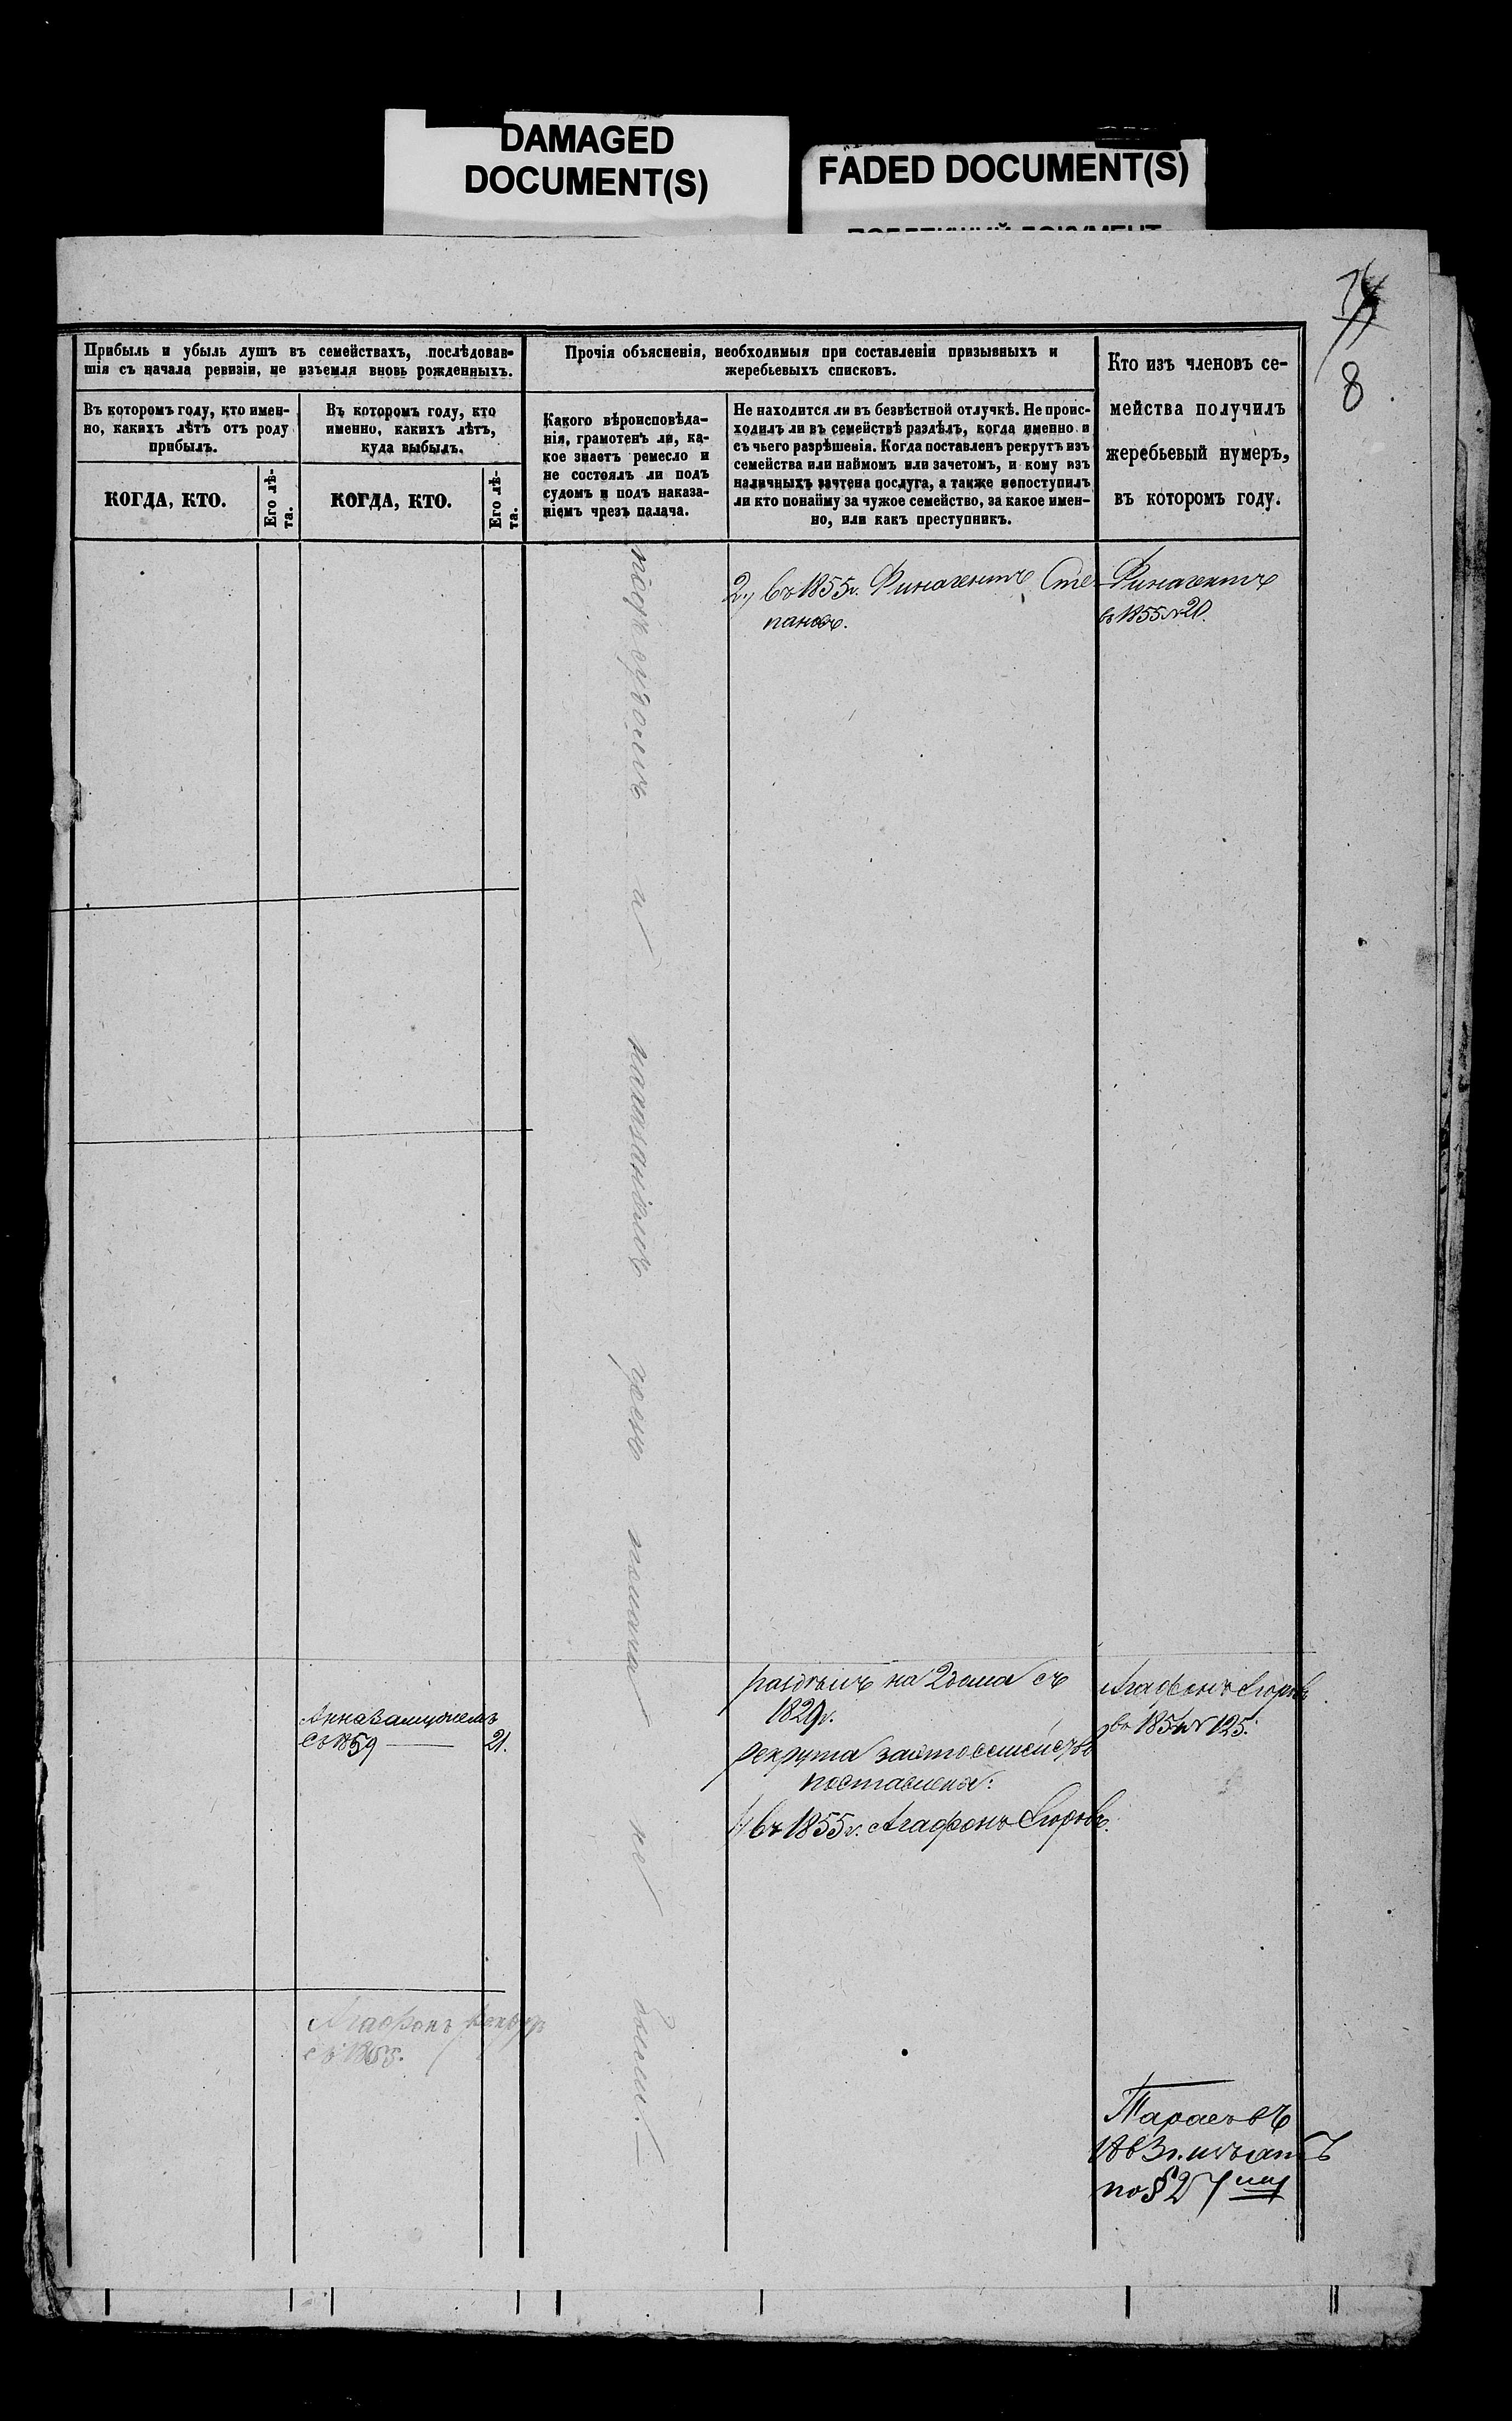 DAMAGED
DOCUMENT(S)
FADED DOCUMENT(S)
8
Прибыль и убыль душъ въ семействахъ, послѣдовав-
шія съ начала ревизіи, не изъемля вновь рожденныхъ.
Въ которомъ году, кто имен-
но, какихъ лѣтъ отъ роду
прибылъ.
Въ которомъ году, кто
именно, какихъ лѣтъ,
куда выбылъ.
КОГДА, КТО.
Его лѣ-
та.
КОГДА, КТО.
Его лѣ-
та.
Прочія объясненія, необходимыя при составленіи призывныхъ и
жеребьевыхъ списковъ.
Какого вѣроисповѣда-
нія, грамотенъ ли, ка-
кое знаетъ ремесло и
не состоялъ ли подъ
судомъ и подъ наказа-
ніемъ чрезъ палача.
Не находится ли въ безвѣстной отлучкѣ. Не проис-
ходилъ ли въ семействѣ раздѣлъ, когда именно и
съ чьего разрѣшенія. Когда поставленъ рекрутъ изъ
семейства или наймомъ или зачетомъ, и кому изъ
наличныхъ зачтена послуга, а также непоступилъ
ли кто понайму за чужое семейство, за какое имен-
но, или какъ преступникъ.
Кто изъ членовъ се-
мейства получилъ
жеребьевый нумеръ,
въ которомъ году.
подъ судомъ и наказаніемъ
2, въ 1855г. Финагентъ Сте-
пановъ.
Финагентъ
въ 1855 № 20.
Анна замужемъ
съ 1859 21.
раздѣлъ на 2 дома съ
1829г.
рекрута за это семейство
поставлена:
1, въ 1855г. Агафонъ Егоровъ.
Агафонъ Егоровъ
въ 1854 № 125.
Агафонъ
съ 1855.
по § 27